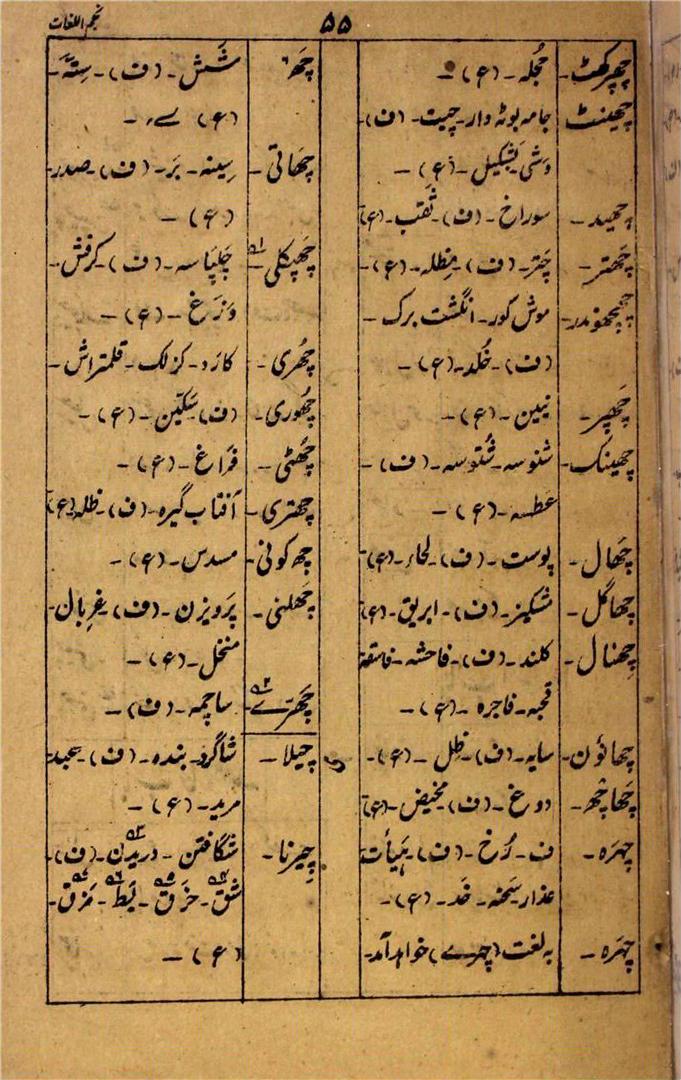 نجم اللغات
۵۵
چھپرکھٹ۔ حجلہ۔ (ع)۔
چھینٹ جامہ بوٹہ دار۔ چیت۔ (ف)۔
وشی۔ (ع)۔
چھید۔ سوراخ۔ (ف)۔ ثقب۔ (ع)
چھتر۔ چتر۔ (ف)۔ مظلہ۔ (ع)۔
چھچھوندر۔ موش کور۔ انگشت برک۔
(ف)۔ خُلد۔ (ع)۔
چھپر۔ (ع)۔
چھینک۔ شنوسہ۔ شُتوسہ۔ (ف)۔
عطسہ۔ (ع)۔
چھال۔ پوست۔ (ف)۔ لحاء۔ (ع)
چھاگل۔ مشکیز۔ (ف)۔ ابریق۔ (ع)
چھنال۔ کلند۔ (ف)۔ فاحشہ۔ فاسقہ
قحبہ۔ فاجرہ۔ (ع)۔
چھائون۔ سایہ۔ (ف)۔ ظِل۔ (ع)۔
چھاچھ۔ دوغ۔ (ف)۔ مخیض۔ (ع)
چہرہ۔ ف۔ رُخ۔ (ف)۔ ہَیأت
عذار۔ سحنہ۔ خَد۔ (ع)۔
چہرہ۔ بہ لغت (چہرے) خواہد آمد۔
ی
چھ۶ شَش۔ (ف)۔ ستّہ۔
(ع) ۔
چھاتی۔ سینہ۔ بَر۔ (ف)۔ صدر۔
(ع)۔
چھپکلی۔ ۵۱ چلپاسہ۔ (ف)۔ کرفش۔
وَزَغ۔ (ع)۔
چھُری۔ کارد۔ کزلک۔ قلمتراش۔
چھُوری۔ (ف) سکّین۔ (ع)۔
چھُٹی۔ فَرَاغ۔ (ع)۔
چھتری۔ آفتاب گیرہ۔ (ف)۔ ظلہ (ع)
چھ کونی۔ مسدس۔ (ع)۔
چھلنی۔ پَرویزن۔ (ف)۔ غربال۔
منخل۔ (ع)۔
چھَرّے۔ ۵۲ ساچمہ۔ (ف)۔
چیلا۔ شاگرد۔ بندہ۔ (ف)۔ عبد
مرید۔ (ع)۔
چیرنا۔ شگافتن۔ دریدن ۵۳۔ (ف)۔
شق ۵۴۔ خرَق ۵۵۔ بَط ۵۶۔ مَزق ۵۷۔
(ع)۔